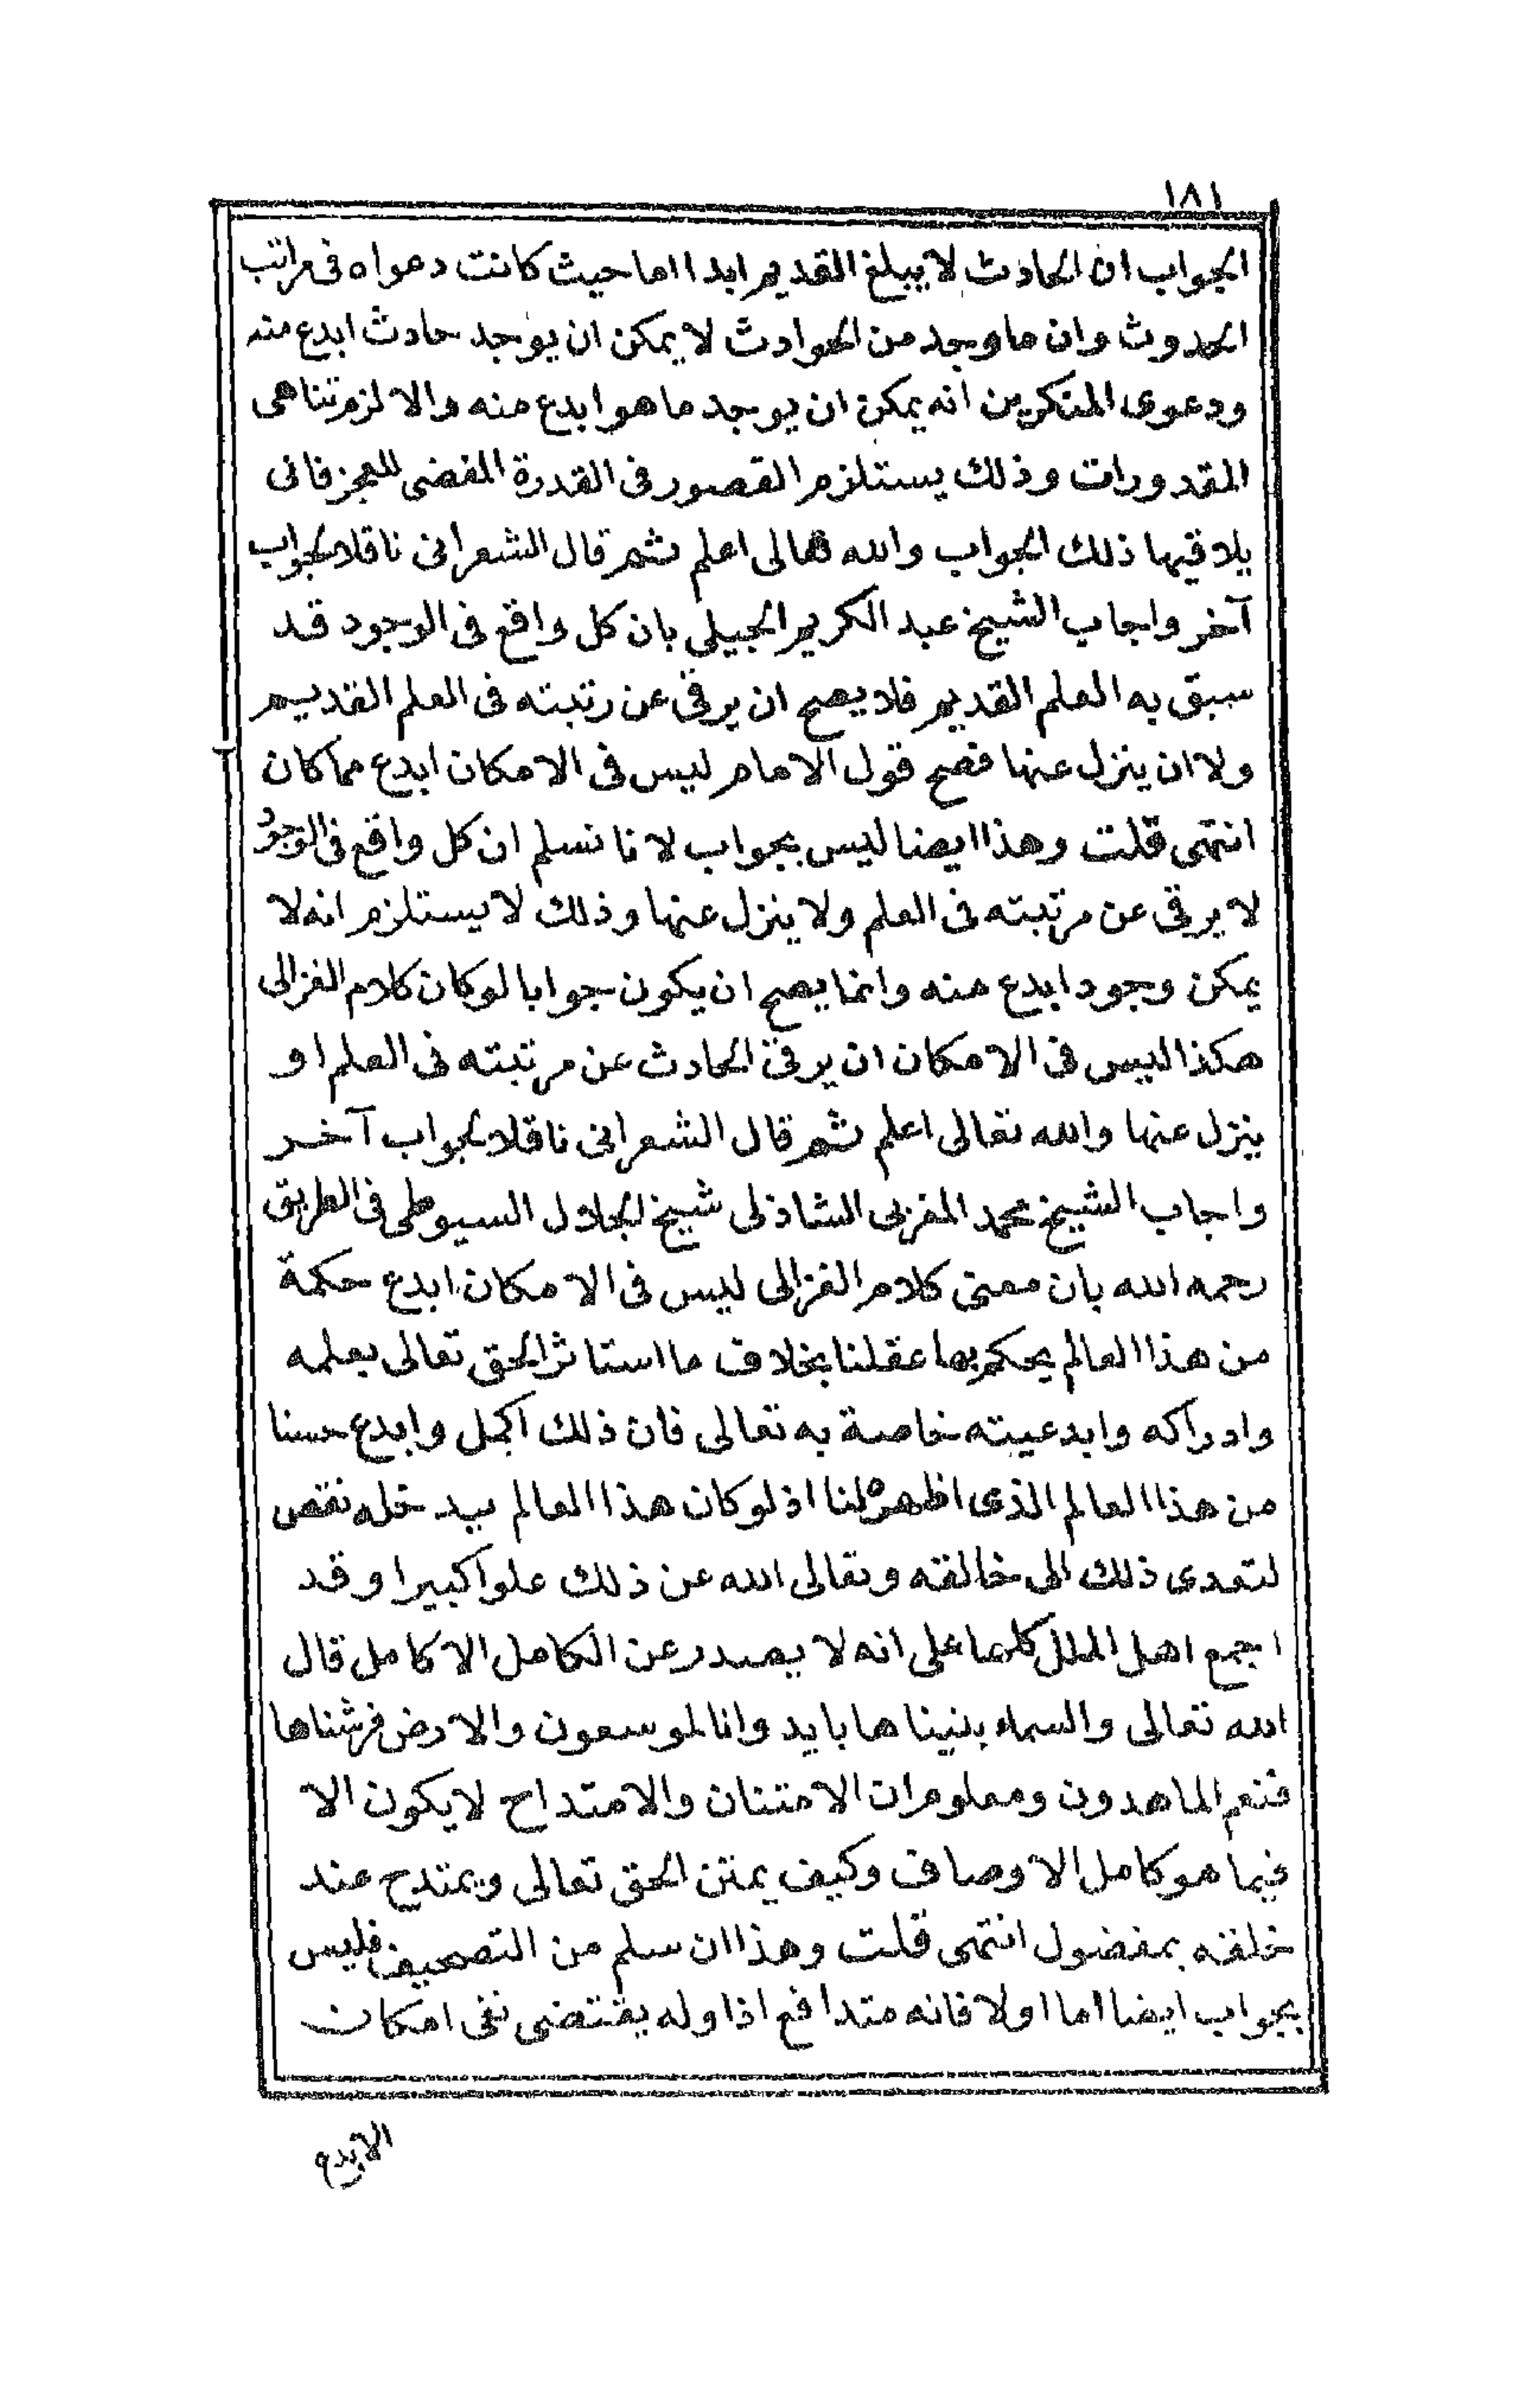 ١٨١
الجواب ان الحادث لا يبلغ القديم ابدا اما حيث كانت دعواه فى مراتب
الحدوث وان ما وجد من الحوادث لا يمكن ان يوجد حادث ابدع منه
ودعوى المنكرين انه يمكن ان يوجد ما هو ابدع منه والا لزم تناهى
المقدورات وذلك يستلزم القصور فى القدرة المفضى للعجز فانى
يلاقيها ذلك الجواب والله تعالى اعلم ثم قال الشعرانى ناقلا لجواب
آخر واجاب الشيخ عبد الكريم الجيلي بان كل واقع فى الوجود قد
سبق به العلم القديم فلا يصح ان يرقى عن رتبته فى العلم القديم
ولا ان ينزل عنها فصح قول الامام ليس فى الامكان ابدع مما كان
انتهى قلت وهذا ايضا ليس بجواب لانا نسلم ان كل واقع فى الوجود
لا يرقى عن مرتبته فى العلم ولا ينزل عنها وذلك لا يستلزم انه لا
يمكن وجود ابدع منه وانما يصح ان يكون جوابا لو كان كلام الغزالى
هكذا ليس فى الامكان ان يرقى الحادث عن مرتبته فى العلم او
ينزل عنها والله تعالى اعلم ثم قال الشعرانى ناقلا لجواب آخر
واجاب الشيخ محمد المغربى الشاذلى شيخ الجلال السيوطى فى الطريق
رحمه الله بان معنى كلام الغزالى ليس فى الامكان ابدع حكمة
من هذا العالم يحكم بها عقلنا بخلاف ما استاثر الحق تعالى بعلمه
وادراكه وابدعيته خاصة به تعالى فان ذلك اكمل وابدع حسنا
من هذا العالم الذى اظهره لنا اذ لو كان هذا العالم يدخله نقص
لتعدى ذلك الى خالقه وتعالى الله عن ذلك علوا كبيرا وقد
اجمع اهل الملل كلها على انه لا يصدر عن الكامل الا كامل قال
الله تعالى والسماء بنيناها بايد وانا لموسعون والارض فرشناها
فنعم الماهدون ومعلوم ان الامتنان والامتداح لا يكون الا
فيما هو كامل الاوصاف وكيف يمتن الحق تعالى ويمتدح عند
خلقه بمفضول انتهى قلت وهذا ان سلم من التصحيف فليس
بجواب ايضا اما اولا فانه متدافع اذ اوله يقتضى نفى امكان
الابدع